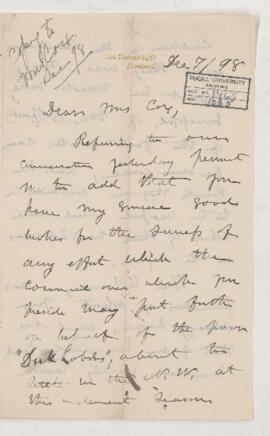 Copy to
Mrs Cox
Dec 98
Montreal
Dec 7/98
McGILL UNIVERSITY
ARCHIVES
ACC. NO.
REF.
Dear Mrs Cox,
Referring to our
conversation yesterday permit
me to add that you
have my sincere good
wishes for the success of
any effort which the
Council over which you
preside may put forth
on behalf of the poor
"Dukhobors", about to
settle in the N.W. at
this inclement season